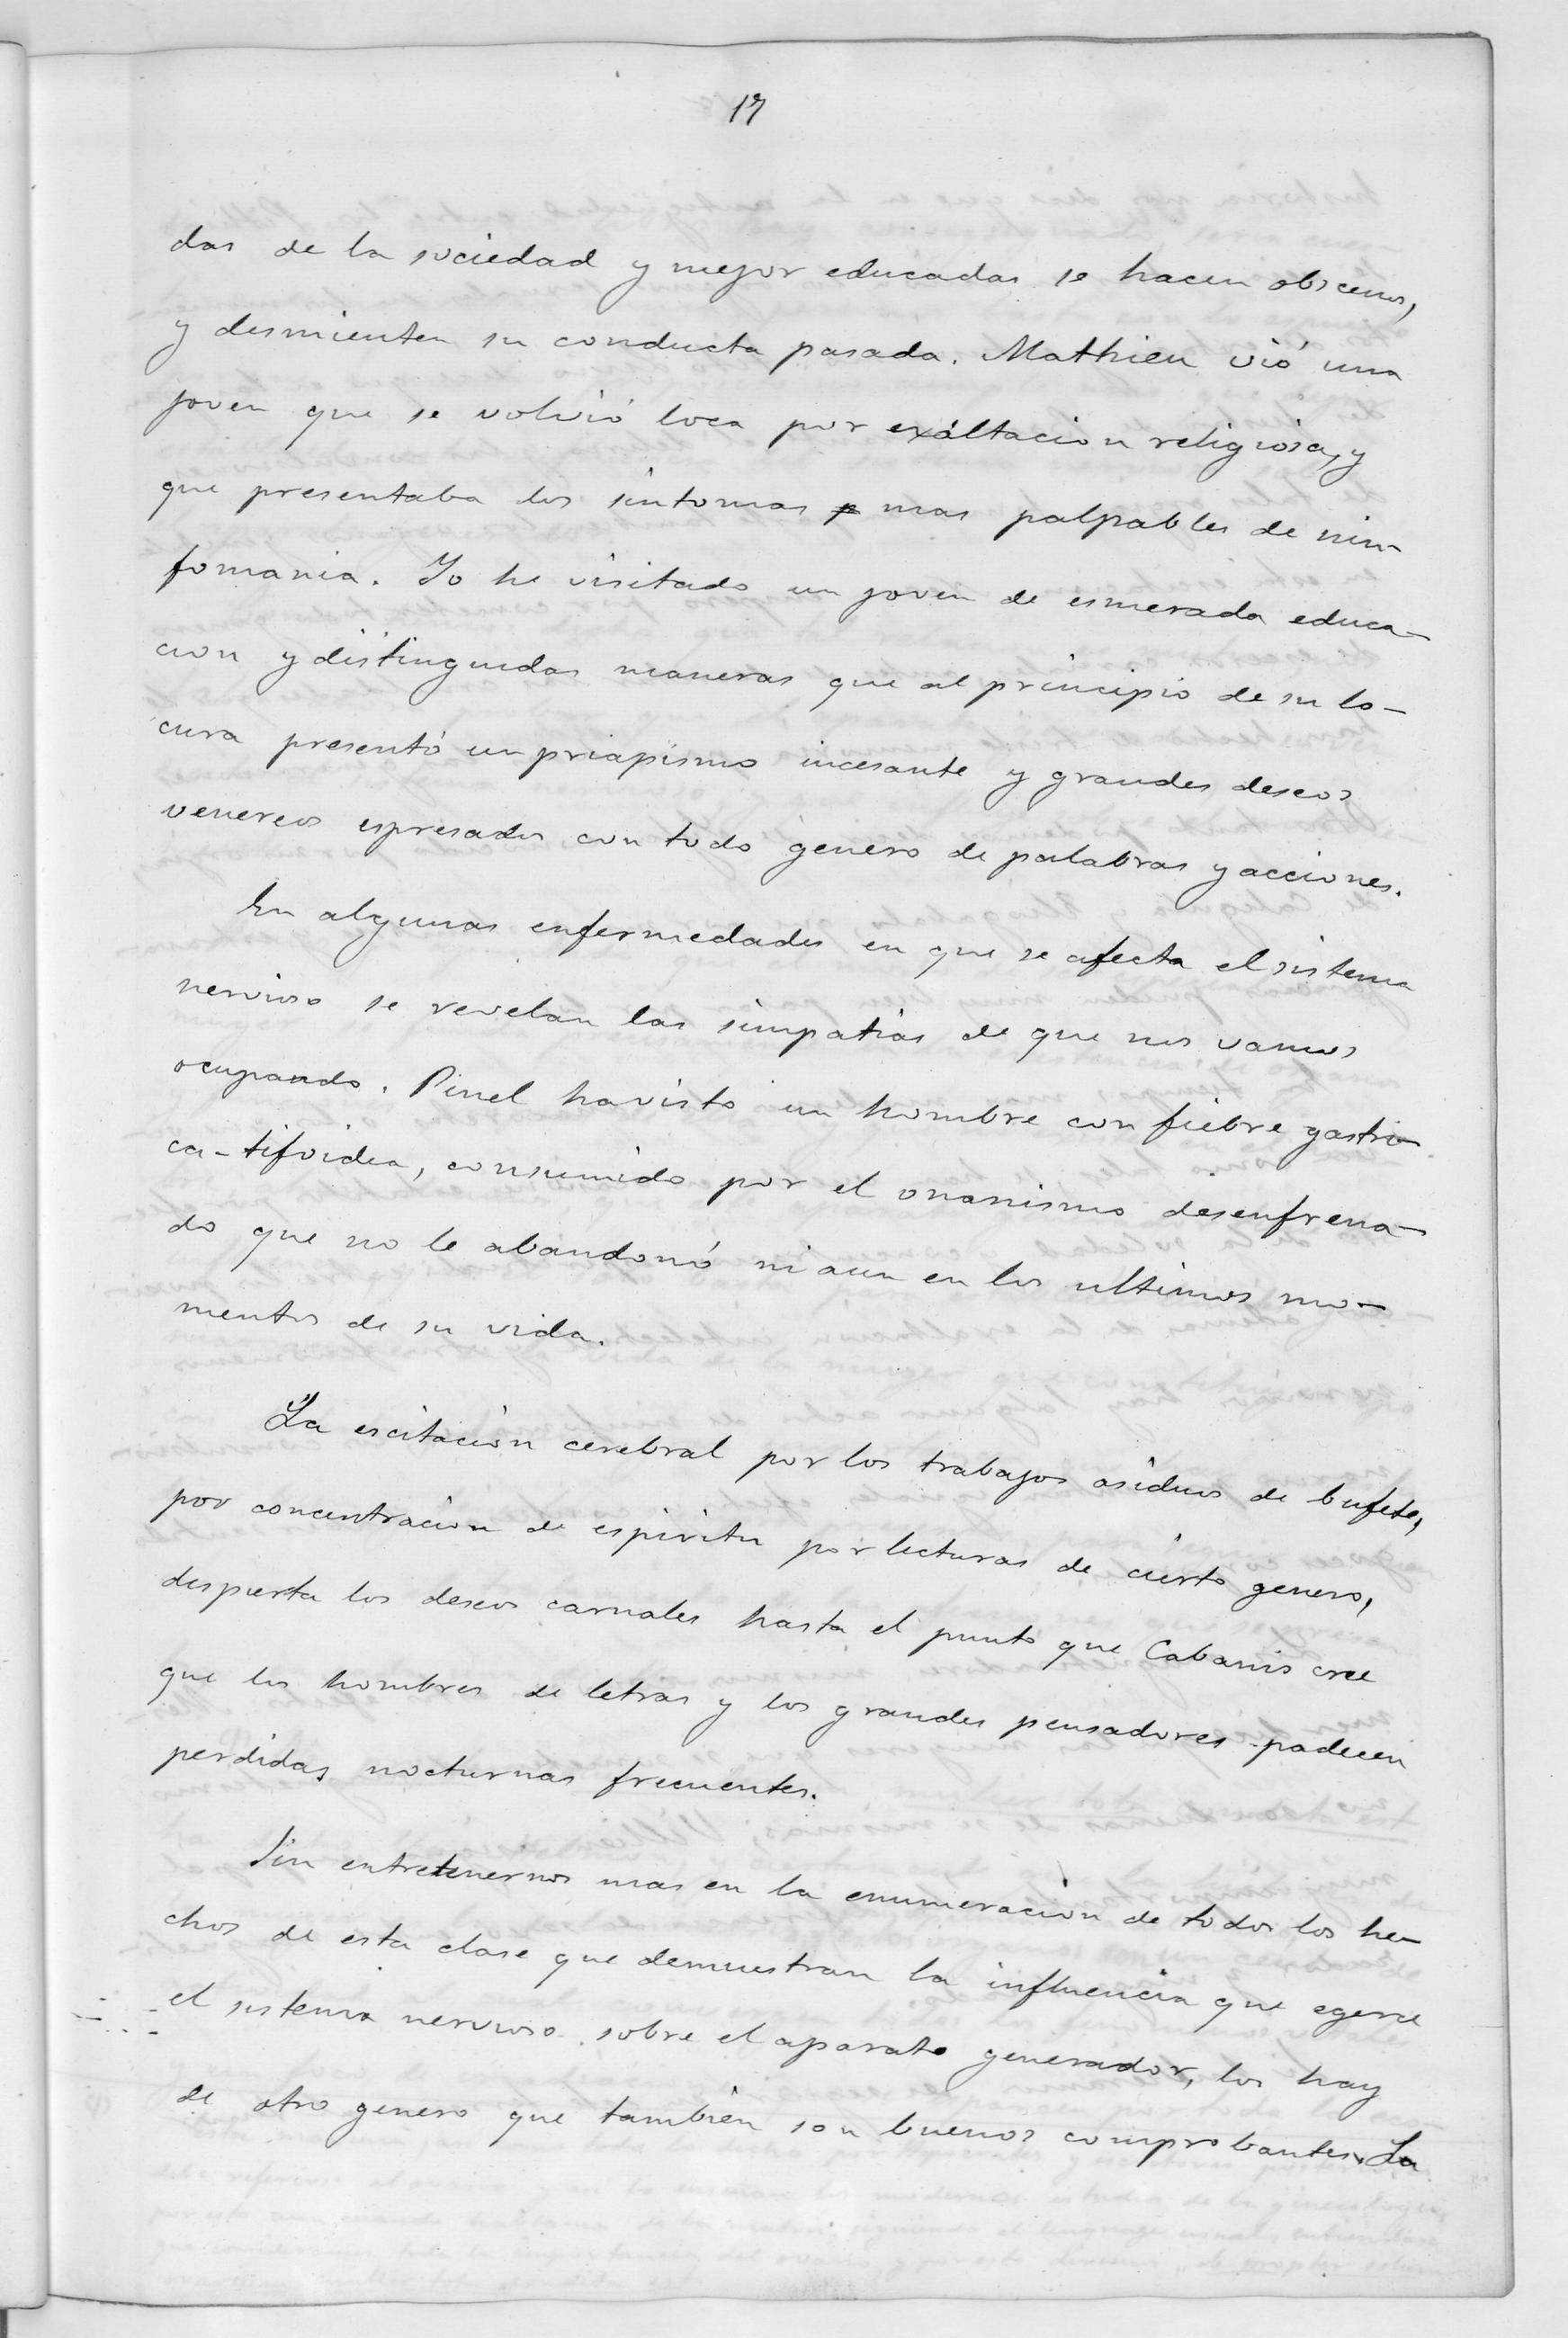 17
das de la sociedad y mejor educadas se hacen obscenos,
y desmienten su conducta pasada. Mathieu vió una
joven que se volvió loca por exaltacion religiosa, y
que presentaba los sintomas mas palpables de nin-
fomania. Yo he visitado un joven de esmerada educa-
cion y distinguidas maneras que al principio de su lo-
cura presentó un priapismo incesante y grandes deseos
venereos espresados con todo género de palabras y acciones.
En algunas enfermedades en que se afecta el sistema
nervioso se revelan las simpatias de que nos vamos
ocupando. Pinel ha visto un hombre con fiebre gastri-
ca-tifoidea, consumido por el onanismo desenfrena-
do que no le abandonó ni aun en los ultimos mo-
mentos de su vida.
La escitacion cerebral por los trabajos asiduos de bufete,
por concentracion de espiritu por lecturas de cierto genero,
despierta los deseos carnales hasta el punto que Cabanis cree
que los hombres de letras y los grandes pensadores padecen
perdidas nocturnas frecuentes.
Sin entretenernos mas en la enumeracion de todos los he-
chos de esta clase que demuestran la influencia que egerce
el sistema nervioso sobre el aparato generador, los hay
de otro genero que tambien son buenos comprobantes. La